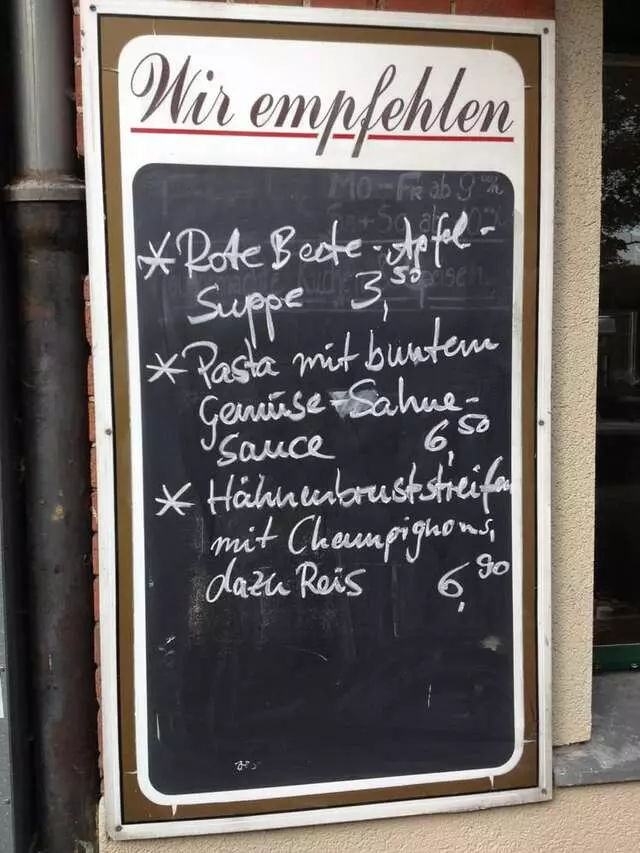 Wir empfehlen
MO-FR ab 9 Uhr
Sa+So ab
* Rote Beete-Apfel-
Suppe 3,50
* Pasta mit buntem
Gemüse-Sahne-
sauce 6,50
* Hähnenbruststreifen
mit Champignons,
dazu Reis 6,90